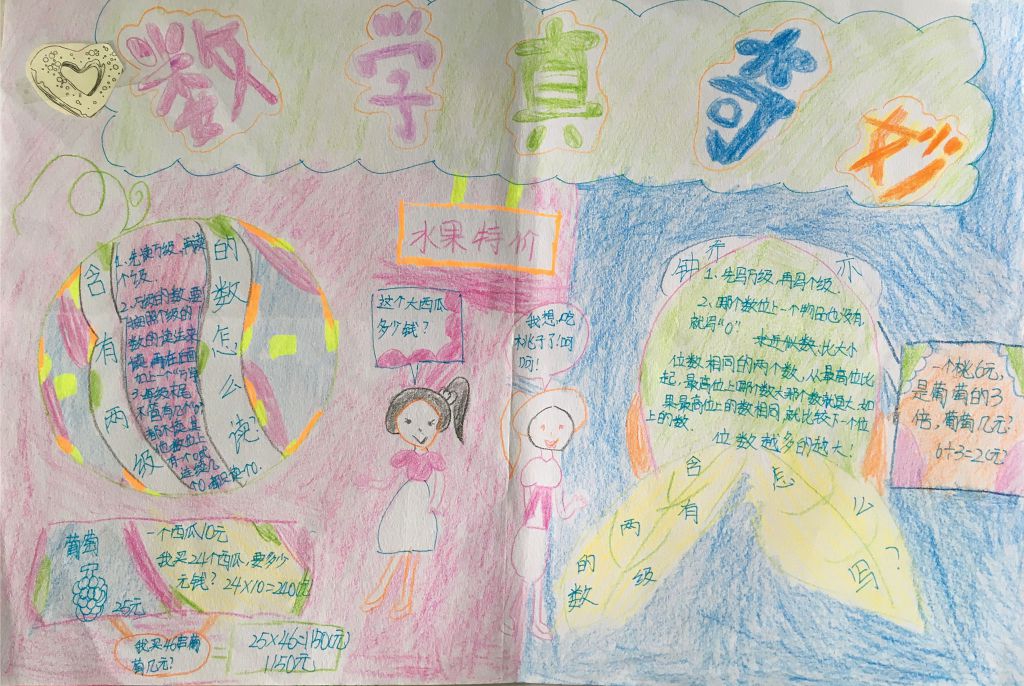 数学真奇妙
水果特价
含有两级
的数怎么读
1、先读万级，再读
个级.
2、万级的数，要
数的读法来
读，再在后面
加上一个"万"字
3、每级末尾
不管有几个"0"
都不读，其
他数位上
有一个0或
连续几
个0，都只读一个0.
这个大西瓜
多少钱？
我想吃
桃子了！呵
呵！
1、先写万级，再写个级.
2、哪个数位上一个物品也没有
就写"0"
求近似数，比大小
位数相同的两个数，从最高位比
起，最高位上哪个数大那个数就大，如
果最高位上的数相同，就比较下一个位
上的数.
位数越多的越大！
含有两级的数
怎么写？
一个桃6元，
是葡萄的3
倍.葡萄几元？
6÷3=2(元)
葡萄
25元
一个西瓜10元
我买24个西瓜，要多少
元钱？24×10=240(元)
我买46串葡
萄几元？
25×46=1150(元)
1150元